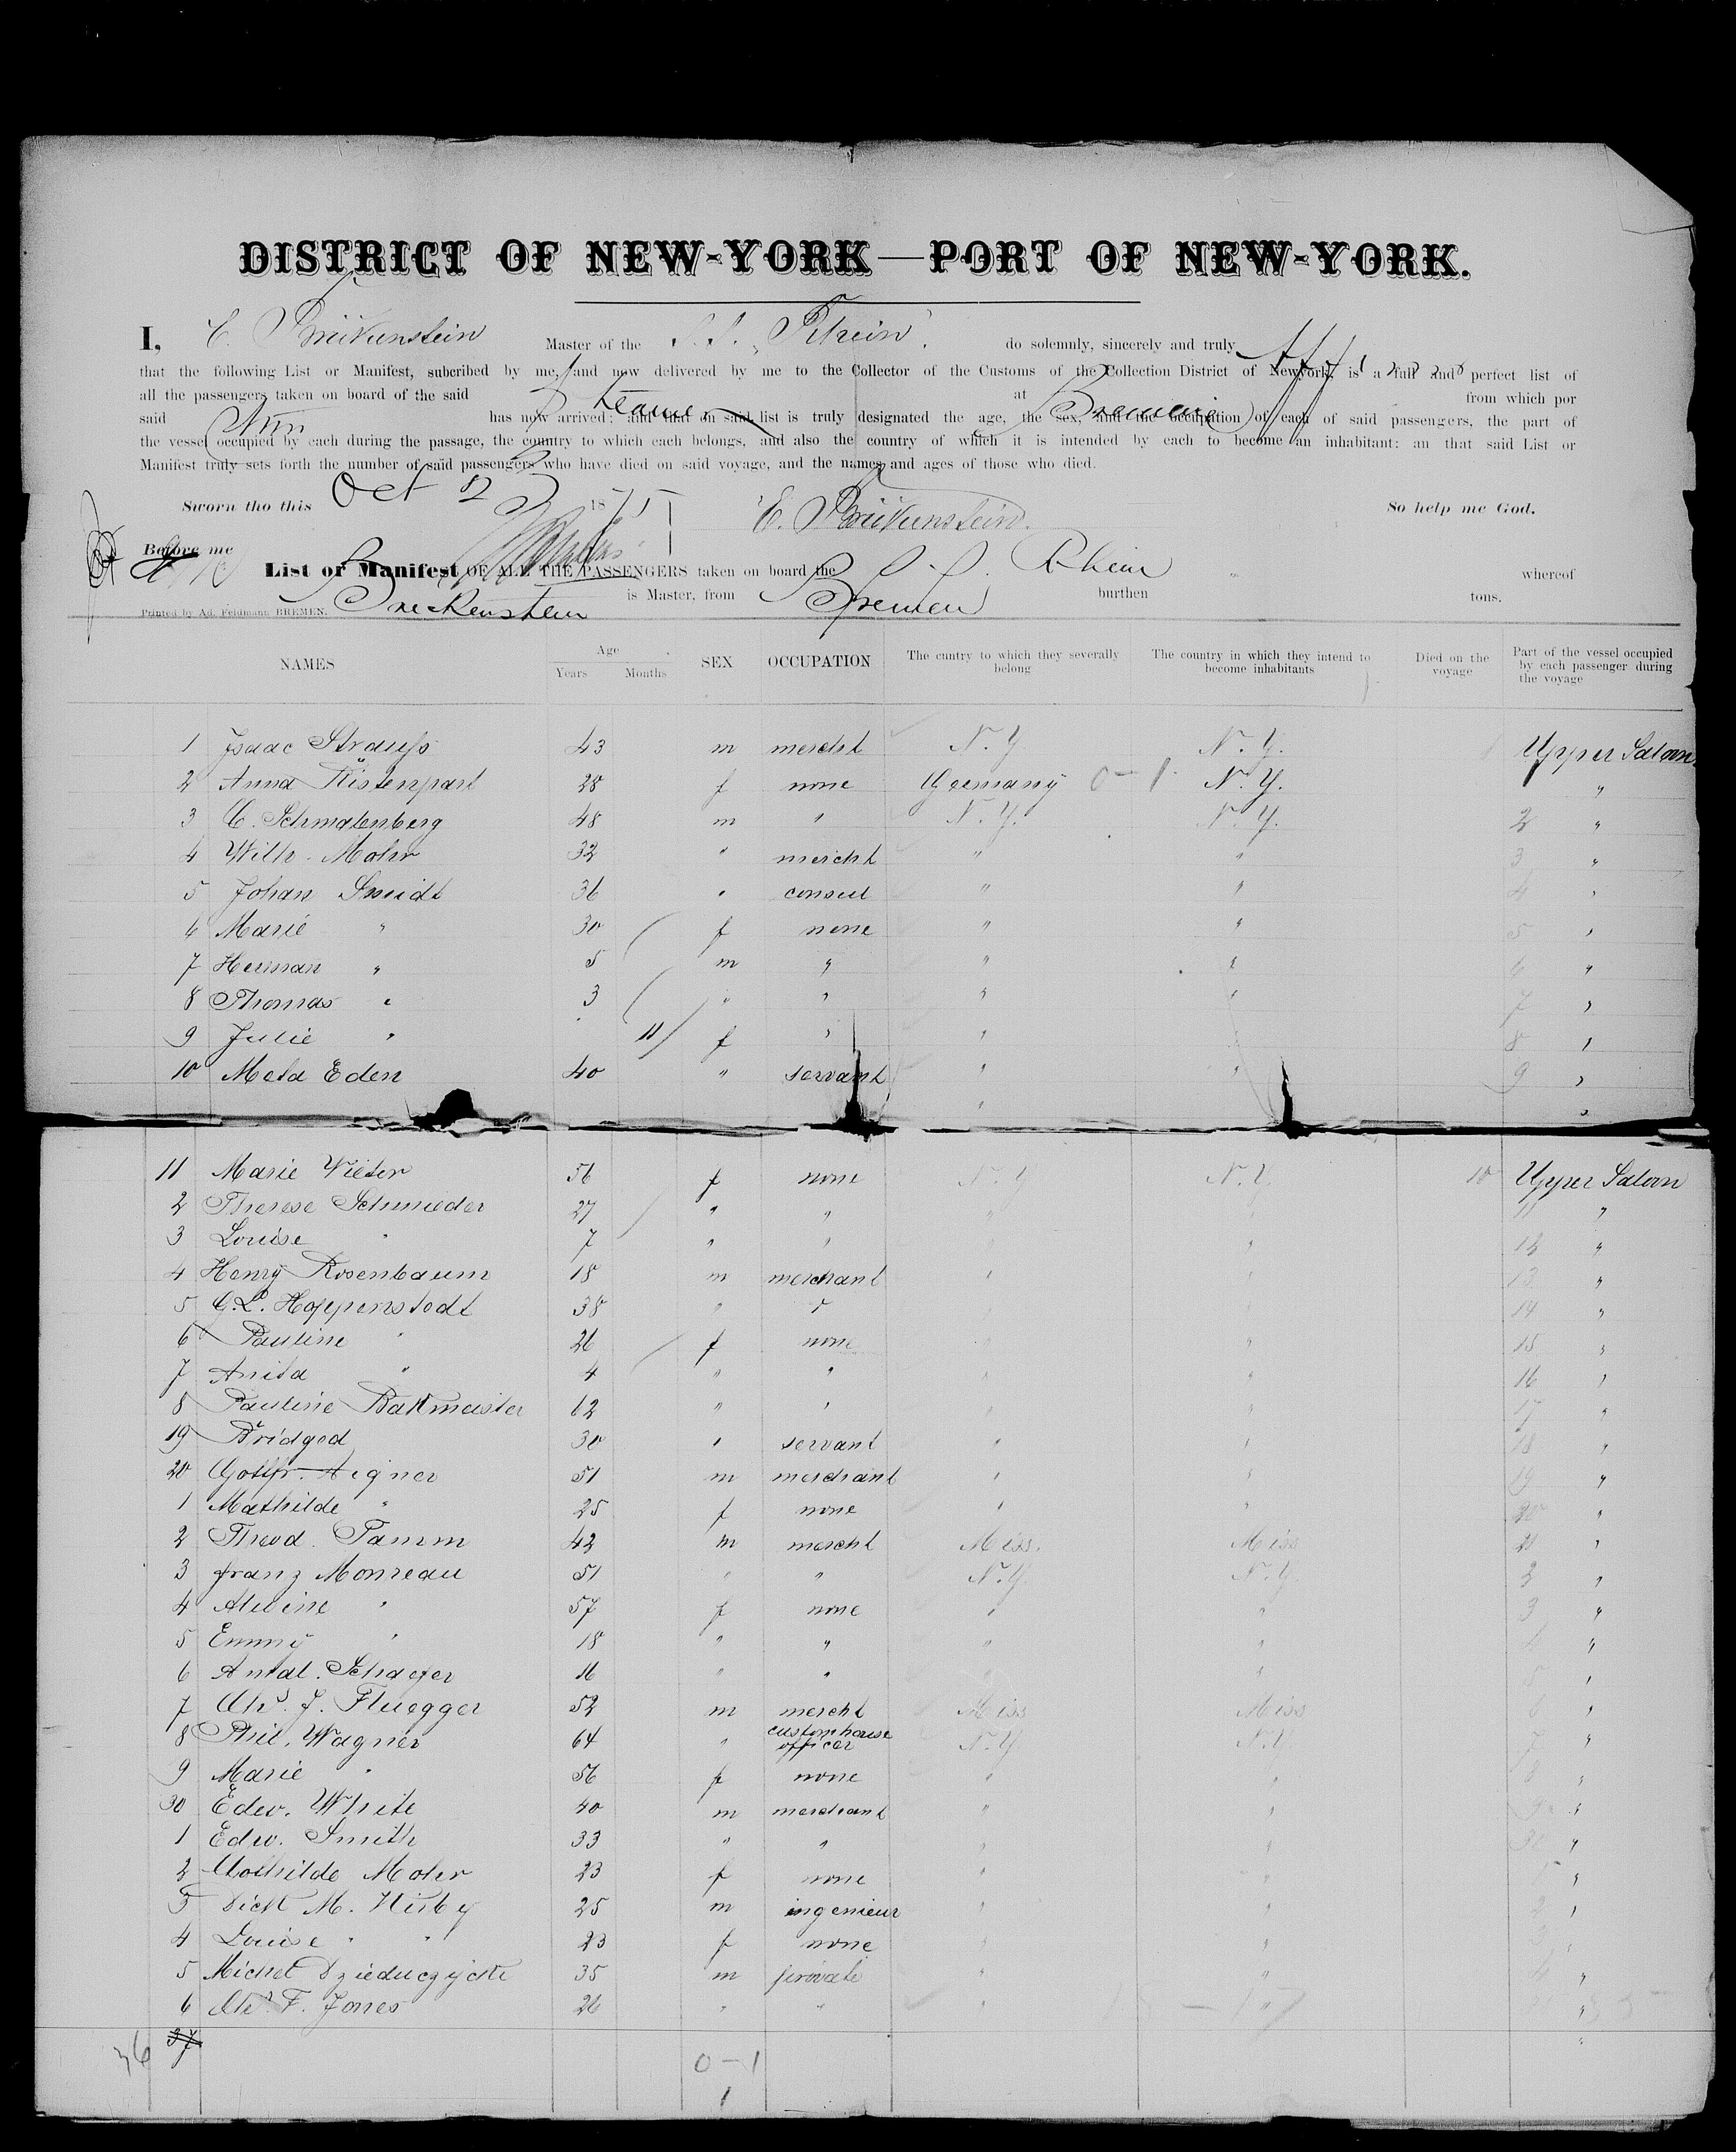 DISTRICT OF NEW-YORK—PORT OF NEW-YORK.
I, E. Brickenstein Master of the S. S. "Rhein". do solemnly, sincerely and truly
that the following List or Manifest, subcribed by me, and now delivered by me to the Collector of the Customs of the Collection District of Newyork, is a full and perfect list of
all the passengers taken on board of the said Steamer at Bremen from which por
said has now arrived; and that on said list is truly designated the age, the sex, and the occupation of each of said passengers, the part of
the vessel occupied by each during the passage, the country to which each belongs, and also the country of which it is intended by each to become an inhabitant: an that said List or
Manifest truly sets forth the number of said passengers who have died on said voyage, and the names and ages of those who died.
Sworn tho this Oct 187 E. Brickenstein. So help me God.
Before me
List or Manifest OF ALL THE PASSENGERS taken on board the S. S. Rhein whereof
Brickenstein is Master, from Bremen burthen tons.
Printed by Ad. Feldmann BREMEN.
NAMES Age Years Months SEX OCCUPATION The cuntry to which they severally belong The country in which they intend to become inhabitants Died on the voyage Part of the vessel occupied by each passenger during the voyage
1 Isaac Strauss 43 m mercht N. Y N. Y. 1 Upper Saloon
2 Anna Küstenpart 28 f none Germany 0-1 N. Y. "
3 C. Schmalenberg 48 m " N. Y. N. Y. 2 "
4 Wilh. Mohr 32 " mercht " " 3 "
5 Johan Smidt 36 " consul " " 4 "
6 Marie " 30 f none " " 5 "
7 Herman " 5 m " " " 6 "
8 Thomas " 3 " " " " 7 "
9 Julie " 11 f " " 8 "
10 Meta Eden 40 " servant " " 9 "
11 Marie Vieter 56 f none N. Y N. Y. 10 Upper Saloon
2 Therese Schmieder 27 " " " " 11 "
3 Louise " 7 " " " 12 "
4 Henry Rosenbaum 18 m merchant " " 13 "
5 G. L. Hoppenstedt 38 " " 14 "
6 Pauline " 26 f none " 15 "
7 Anita " 4 " " " " 16 "
8 Pauline Backmeister 62 " " " " 17 "
19 Bridged 30 " servant " " 18 "
20 Gottfr. Aigner 51 m merchant " " 19 "
1 Mathilde " 25 f none " " 20 "
2 Theod. Tamm 42 m mercht Miss. Miss 21 "
3 Franz Monreau 51 " " N. Y. N. Y. 2 "
4 Alwine " 57 f none " " 3 "
5 Emmy " 18 " " " " 4 "
6 Amal. Schaefer 16 " " " 5 "
7 Chs. J. Fluegger 52 m mercht Miss Miss 6 "
8 Phil. Wagner 64 " customhouse officer N. Y N. Y 7 "
9 Marie " 56 f none " " 8 "
30 Edw. White 40 m merchant " " 9 "
1 Edw. Smith 33 " " " " 30 "
2 Clothilde Mohr 23 f none " " 1 "
3 Dick M. 25 m ingenieur " " 2 "
4 Louise " " 23 f none " "
5 Michel Dzieduczycki 35 m private " " 4 "
6 Chs. F. Jones 26 " " " " "
36 37
0-1
1